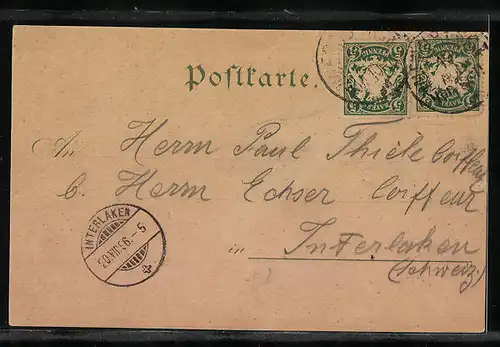 BAYERN 5 PFENNIG 5 BAYERN 5 PFENNIG 5
Postkarte.
An Herrn Paul Thiele Coiffeur
b. Herrn Echser Coiffeur
INTERLAKEN
20.VII.96.-5
in Interlaken
(Schweiz)